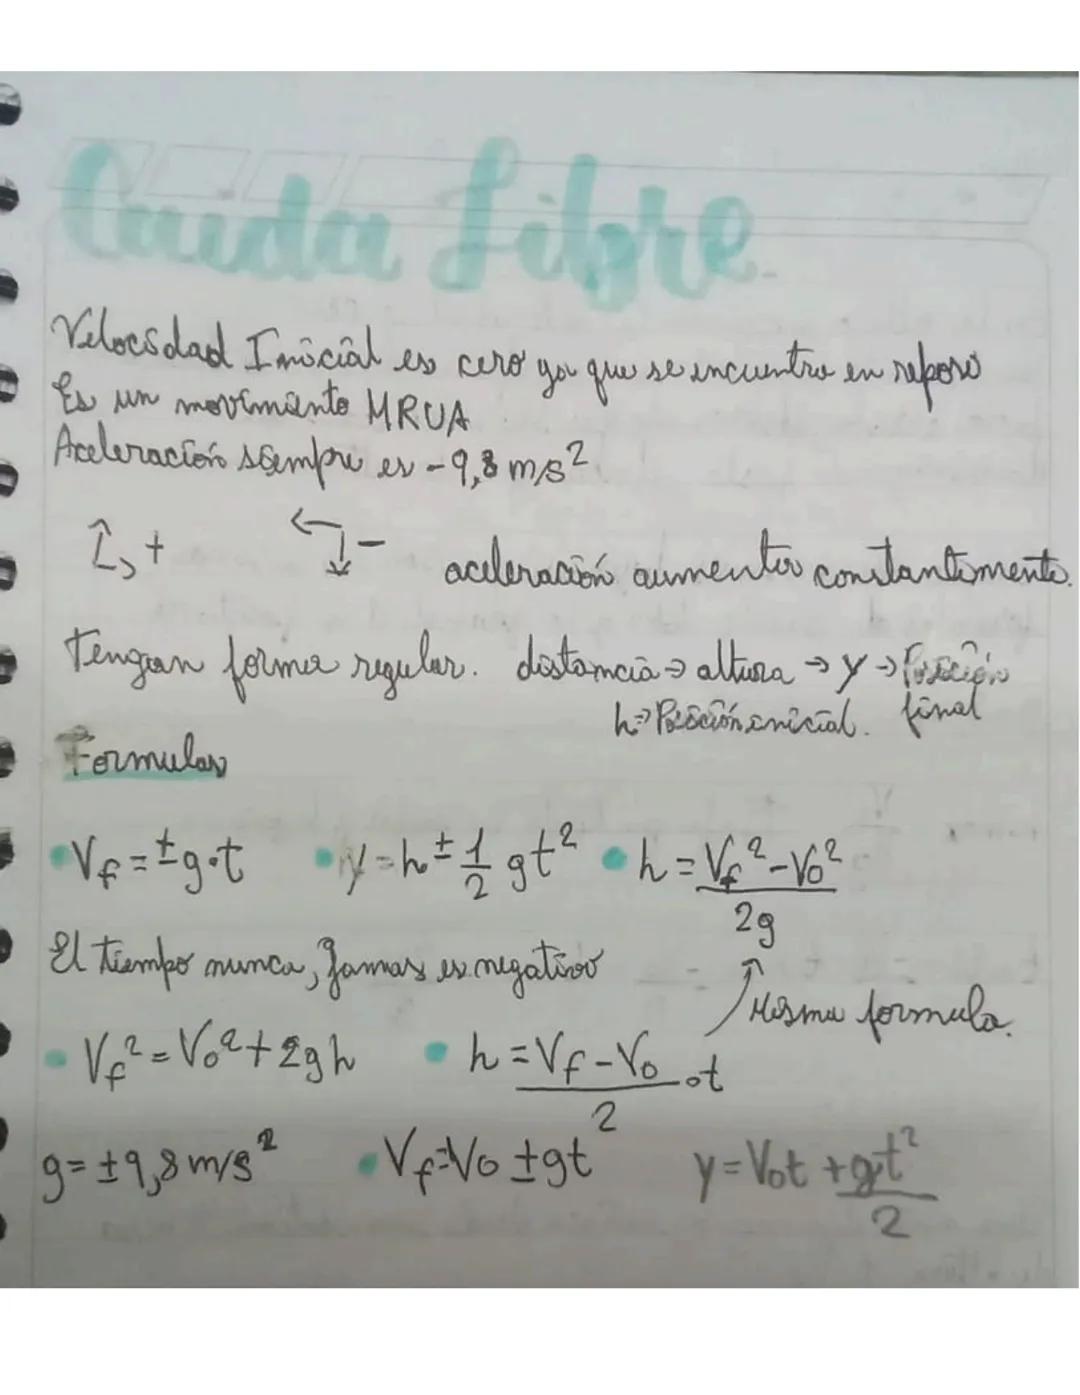 Caida Libre
Velocidad Inicial es cero ya que se encuentra en reposo
Es un movimiento MRUA
Aceleración siempre es -9,8 m/s²
+ - aceleración aumenta constantemente.
Tengan forma regular. distancia → altura → y → Posición final
h → Posición inicial.
Formulas
• Vf = ± g·t • y = h ± 1/2 gt² • h = Vf² - Vo² / 2g
El tiempo nunca, Jamas es negativo
↑ Misma formula.
• Vf² = Vo² + 2gh • h = Vf - Vo / 2 · t
g = ± 9,8 m/s² • Vf = Vo ± gt y = Vot + gt² / 2